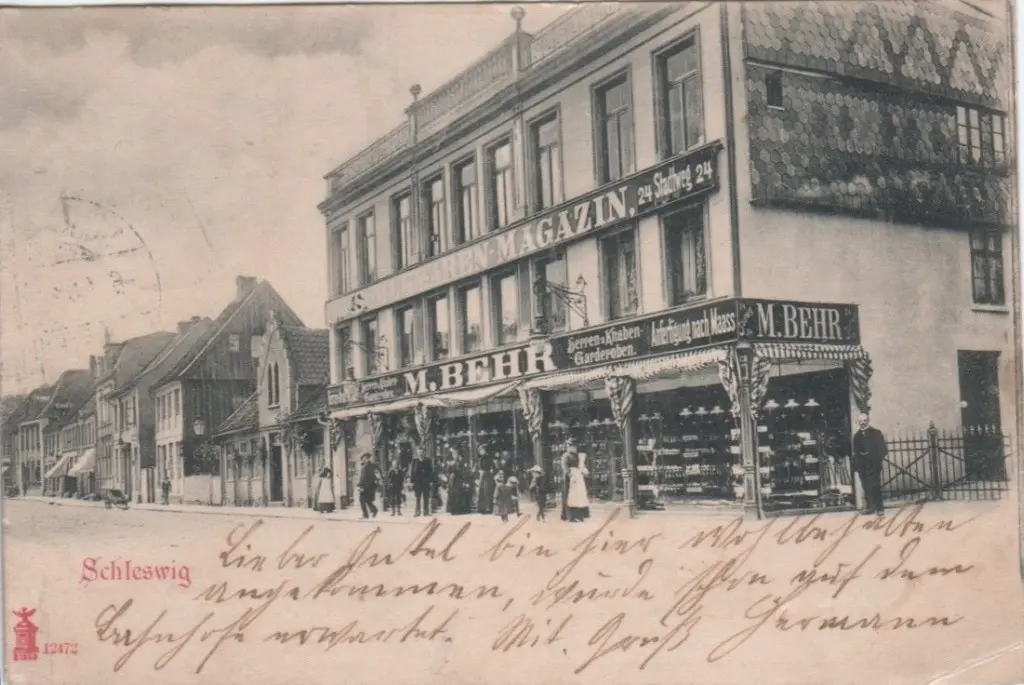 24 Stadtweg 24
AREN-MAGAZIN,
Herren & Knaben-
Garderoben.
Anfertigung nach Maass
M. BEHR
M. BEHR
Schleswig
Lieber Onkel bin hier Wohlbehalten
angekommen, wurde schon auf dem
Bahnhofe erwartet. Mit Gruß Hermann
12472